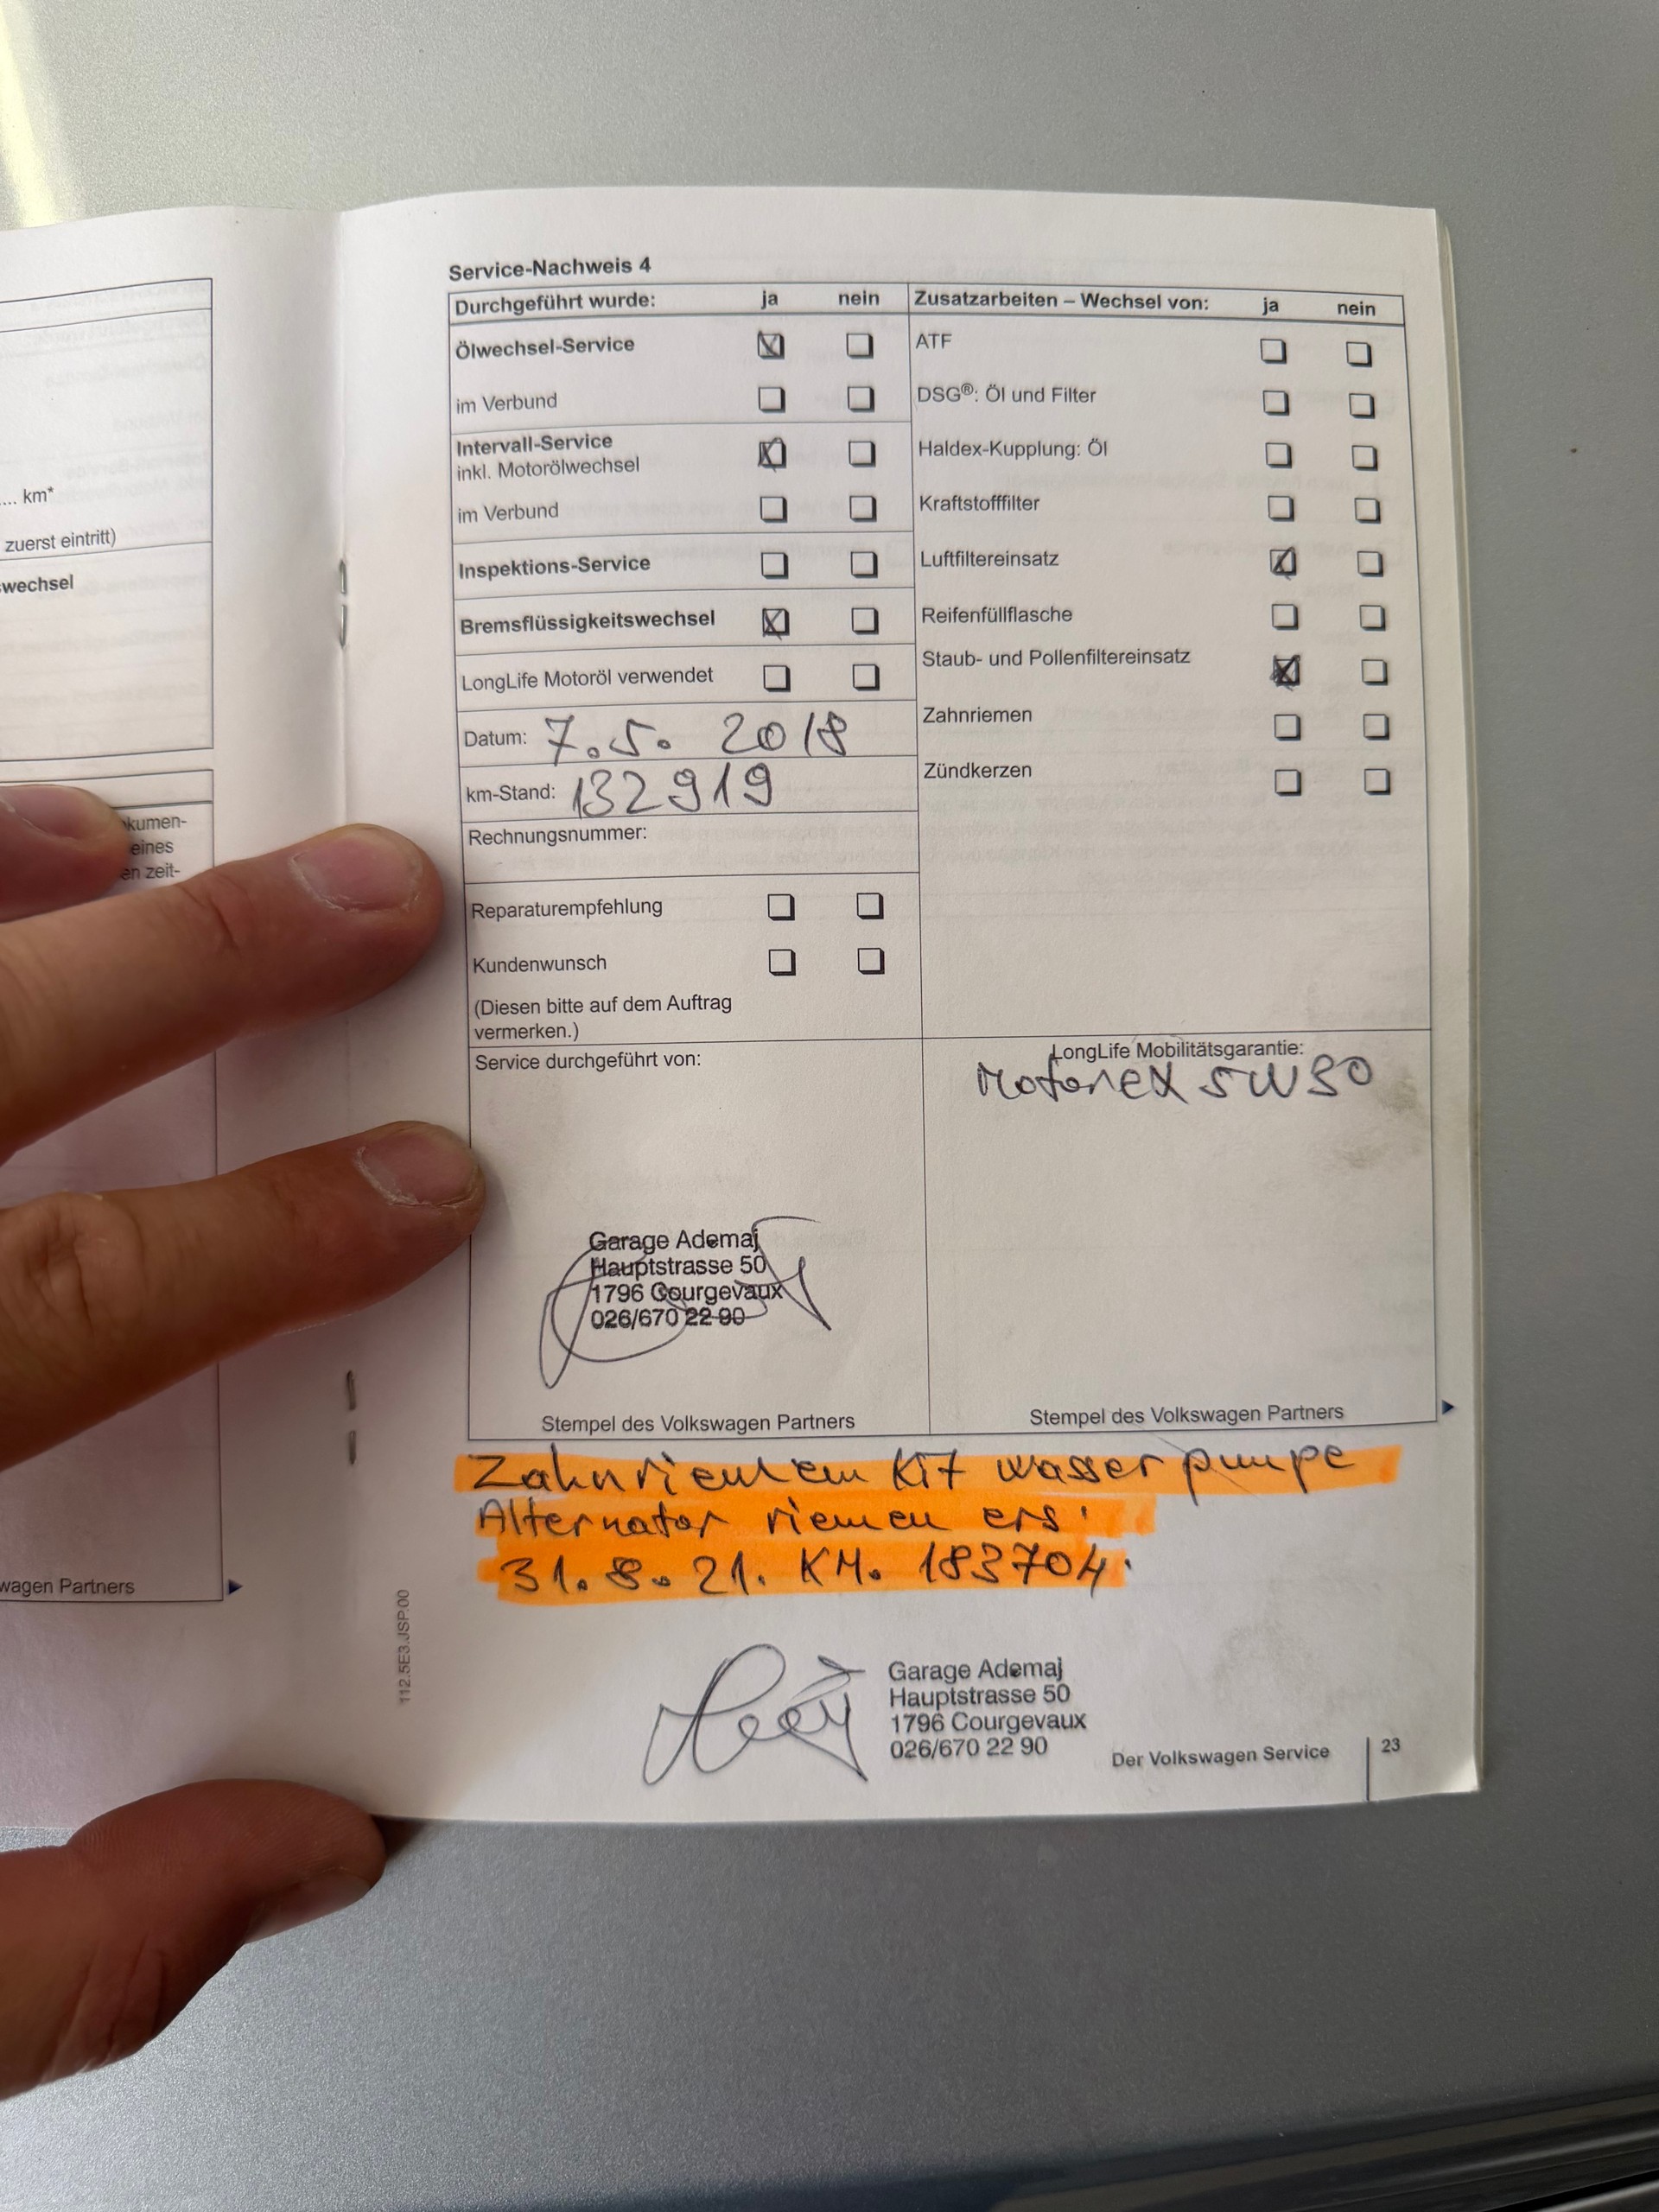 Service-Nachweis 4
Durchgeführt wurde: ja nein
Ölwechsel-Service
im Verbund
Intervall-Service
inkl. Motorölwechsel
im Verbund
Inspektions-Service
Bremsflüssigkeitswechsel
LongLife Motoröl verwendet
Datum: 7.5. 2018
km-Stand: 132919
Rechnungsnummer:
Reparaturempfehlung
Kundenwunsch
(Diesen bitte auf dem Auftrag
vermerken.)
Service durchgeführt von:
Garage Ademaj
Hauptstrasse 50
1796 Courgevaux
026/670 22 90
Stempel des Volkswagen Partners
Zusatzarbeiten – Wechsel von: ja nein
ATF
DSG®: Öl und Filter
Haldex-Kupplung: Öl
Kraftstofffilter
Luftfiltereinsatz
Reifenfüllflasche
Staub- und Pollenfiltereinsatz
Zahnriemen
Zündkerzen
LongLife Mobilitätsgarantie:
Motorex 5W30
Stempel des Volkswagen Partners
Zahnriemen Kit wasser pumpe
Alternator riemen ers.
31.8.21. KM. 183704.
Garage Ademaj
Hauptstrasse 50
1796 Courgevaux
026/670 22 90
Der Volkswagen Service 23
112.5E3.JSP.00
.... km*
zuerst eintritt)
wechsel
kumen-
eines
en zeit-
wagen Partners